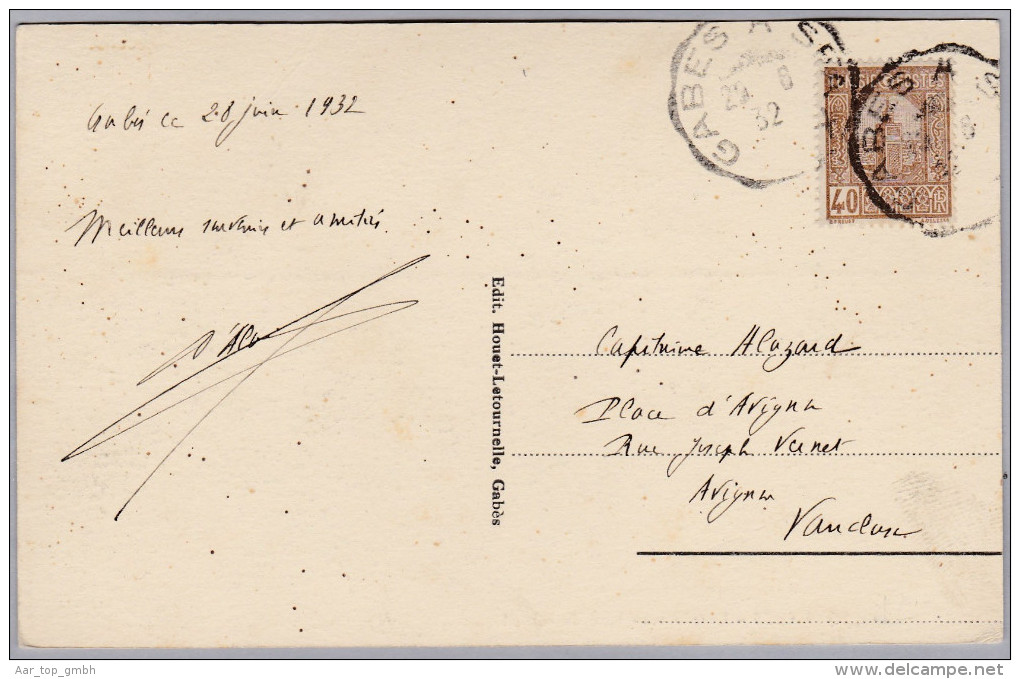 Gabès le 28 juin 1932
Meilleurs souvenirs et amitiés.
Edit. Houet-Letournelle, Gabès
GABES A
29 8
32
POSTES
40
ABES A
8
Capitaine Alazard
Place d'Avignon
Rue Joseph Vernet
Avignon
Vaucluse
Aar_top_gmbh
www.delcampe.net